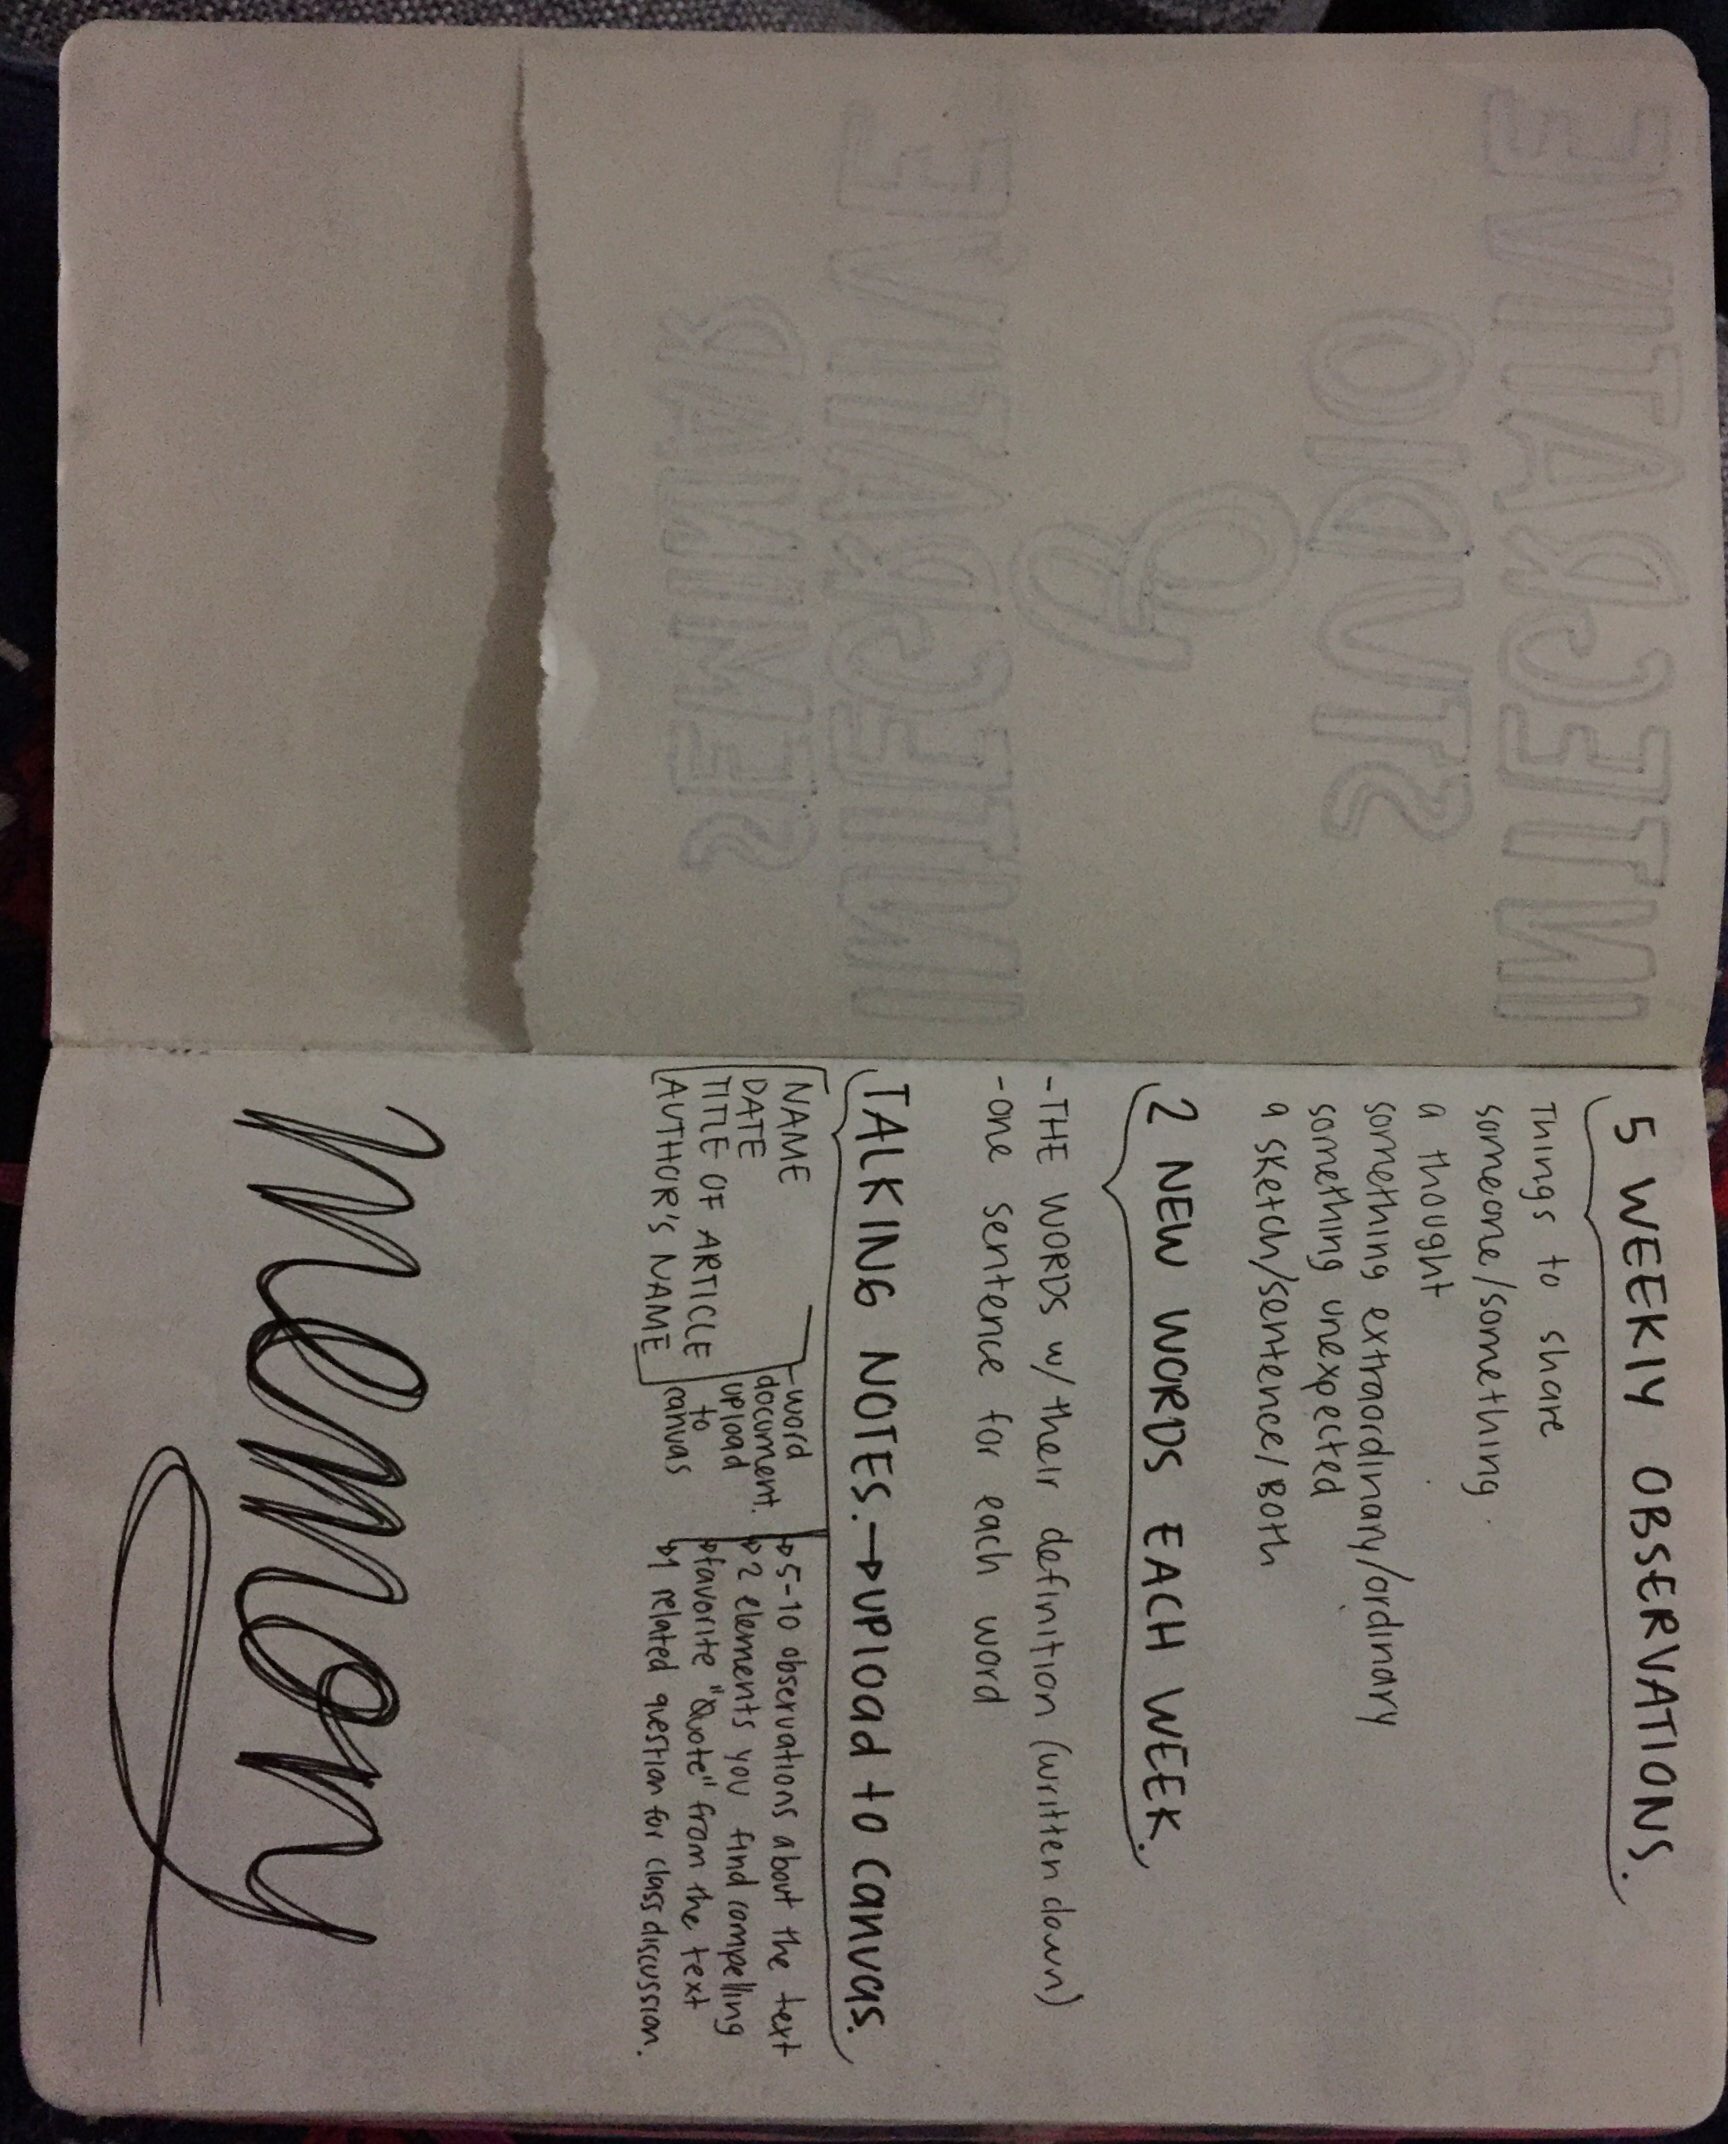 5 WEEKLY OBSERVATIONS.
Things to share
someone/something.
a thought
something extraordinary/ordinary
something unexpected
a sketch/sentence/Both
2 NEW WORDS EACH WEEK.
-THE WORDS w/ their definition (written down)
-one sentence for each word
TALKING NOTES. → upload to canvas.
NAME
DATE
TITLE OF ARTICLE
AUTHOR'S NAME
word
document.
upload
to
canvas
→ 5-10 observations about the text
→ 2 elements you find compelling
→ favorite "Quote" from the text
→ 1 related question for class discussion.
memory
INTEGRATIVE
STUDIO
&
INTEGRATIVE
SEMINAR